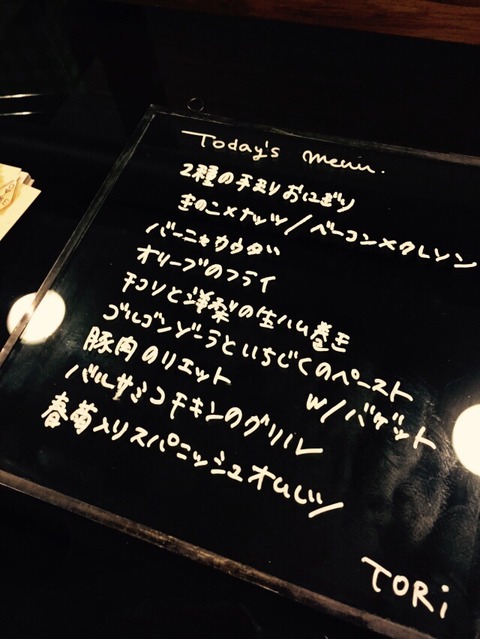 Today's menu.
2種の手まりおにぎり
きのこ×ナッツ/ベーコン×クレソン
バーニャカウダ
オリーブのフライ
チコリと洋梨の生ハム巻き
ゴルゴンゾーラといちじくのペースト
w/バゲット
豚肉のリエット
バルサミコチキンのグリル
春菊入りスパニッシュオムレツ
TORi